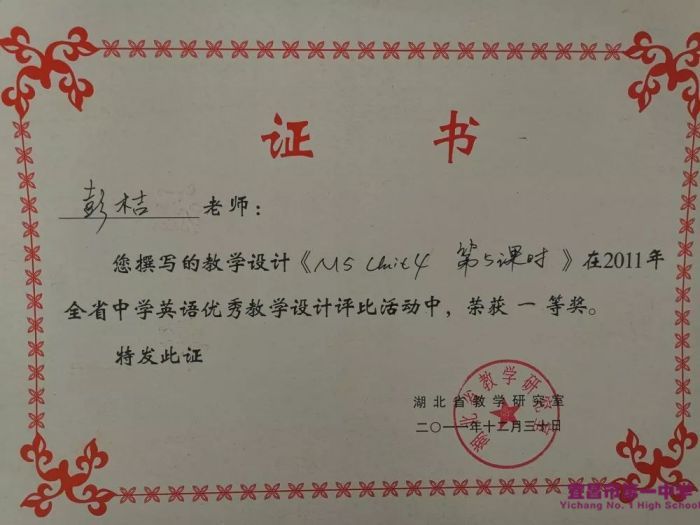 证 书
彭桔 老师：
您撰写的教学设计《M5 Unit4 第5课时》在2011年
全省中学英语优秀教学设计评比活动中，荣获 一 等奖。
特发此证
湖北省教学研究室
二〇一一年十二月三十日
湖北省教学研究室
宜昌市第一中学
Yichang No. 1 High School